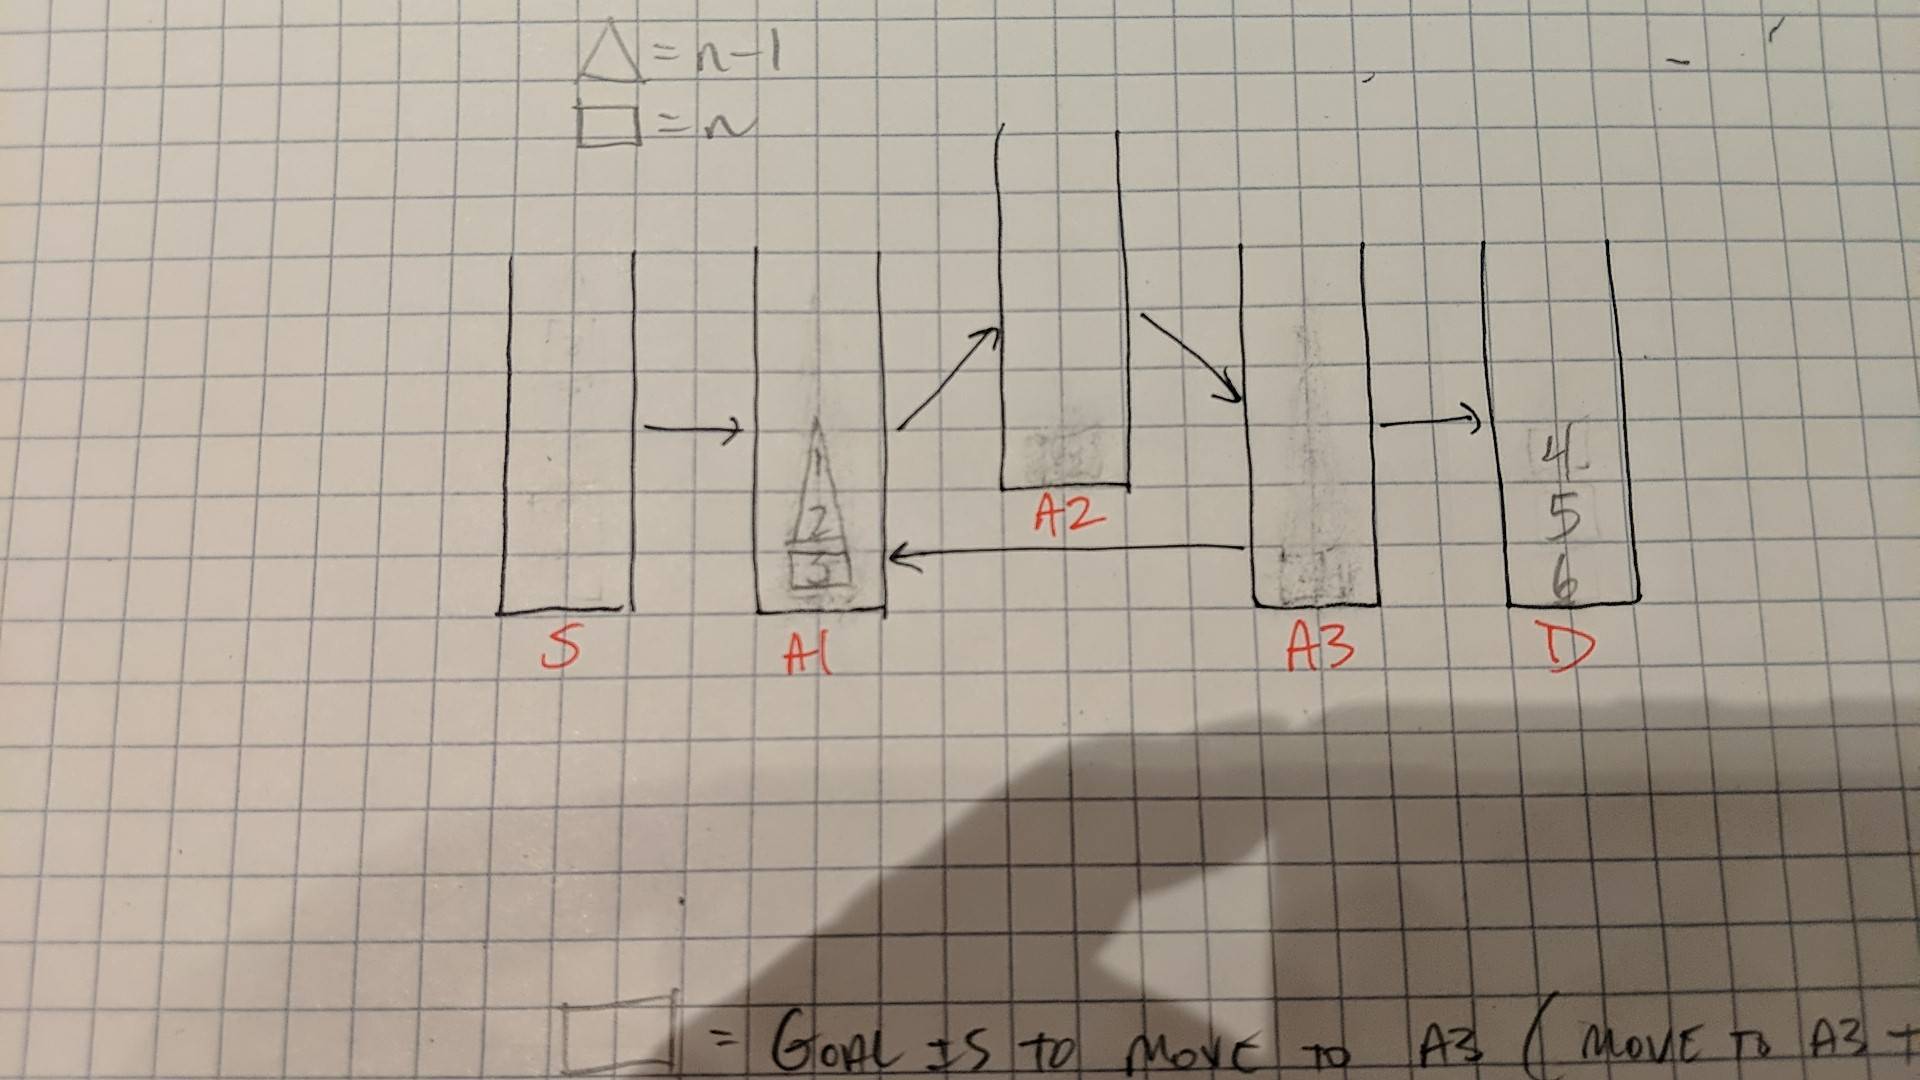 = n-1
= n
1
2
3
4
5
6
S
A1
A2
A3
D
= GOAL IS TO MOVE TO A3 ( MOVE TO A3 +